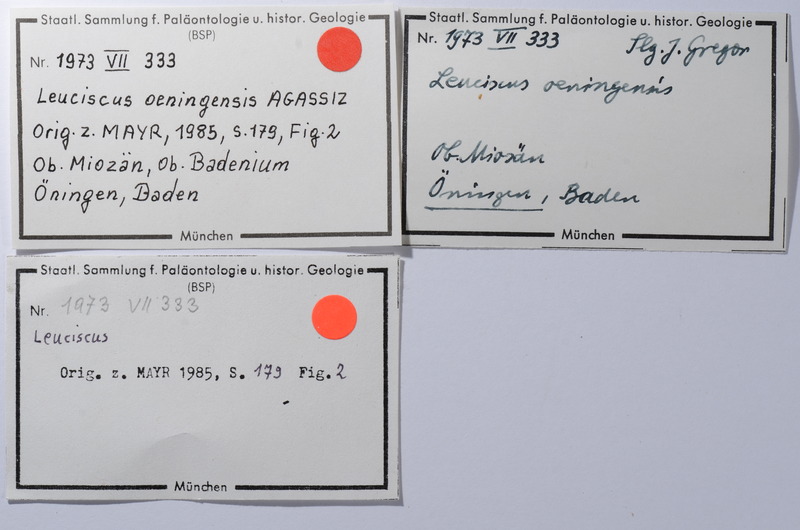 Staatl. Sammlung f. Paläontologie u. histor. Geologie
(BSP)
Nr. 1973 VII 333
Leuciscus oeningensis AGASSIZ
Orig. z. MAYR, 1985, S. 179, Fig. 2
Ob. Miozän, Ob. Badenium
Öningen, Baden
München
Staatl. Sammlung f. Paläontologie u. histor. Geologie
Nr. 1973 VII 333 Slg. J. Gregor
Leuciscus oeningensis
Ob. Miozän
Öningen, Baden
München
Staatl. Sammlung f. Paläontologie u. histor. Geologie
(BSP)
Nr. 1973 VII 333
Leuciscus
Orig. z. MAYR 1985, S. 179 Fig. 2
München